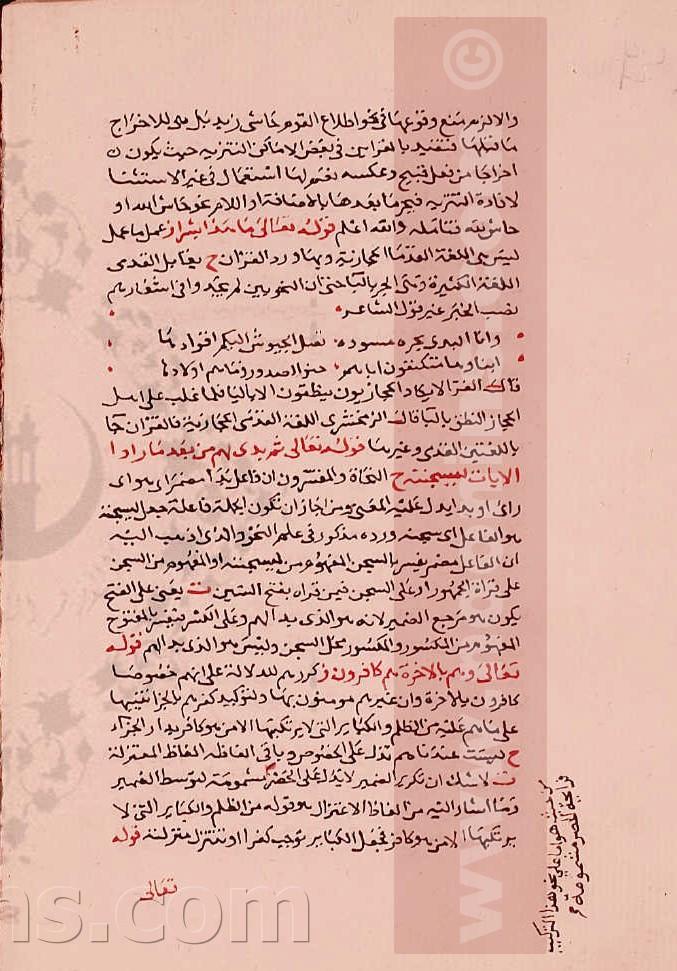 والا لزم منع وقوعها في نحو اطلاع القوم حاشى زيد بل هي للاخراج
ما قبلها فتقيد بالقراين في بعض الاماكن التنزيه حيث يكون
اخراجا من فعل قبيح وعكسه نعم لها استعمال في غير الاستثنا
لافادة التنزيه فيجر ما بعدها بالاضافة او اللام نحو حاش الله او
حاش لله فتامله والله اعلم قوله تعالى ما هذا بشرا ز عمل ما عمل
ليس هي اللغة القدما الحجازية وبها ورد القران ح يقابل القدمى
اللغة الكثيرة وهى الجر بالباحتى ان النحويين لم يجدوا فى اشعارهم
نصب الخبر غير قول الشاعر
وانا النذير بحرة مسودة تصل الجيوش اليكم اقوادها
ابناوها متكنفون اباهم حنقوا الصدور وما هم اولادها
قال الفرا لا يكاد الحجازيون ينطقون الا بالبا فلما غلب على اهل
الحجاز النطق بالبا قال الزمخشرى اللغة القدمى الحجازية فالقران جا
باللغتين القدمى وغيرها قوله تعالى ثم بدى لهم من بعد ما راوا
الايات ليسجننه ح النحاة والمفسرون ان فاعل بدا مضمر اى هو اى
راى او بدا يدل عليه المعنى ومن اجاز ان تكون الجملة فاعلة جعل ليسجننه
هو الفاعل اى سجنه ورده مذكور في علم النحو والذى اذهب اليه
ان الفاعل مضمر يفسره السجن المفهوم من ليسجننه او المفهوم من السجن
على قراة الجمهور او على السجن فيمن قراه بفتح السين ت يعنى على الفتح
يكون هو مرجع الضمير لانه هو الذى بدا لهم وعلى الكسر يفسر بالمفتوح
المفهوم من المكسور والمكسور محل السجن وليس هو الذى بدا لهم قوله
تعالى وهم بالاخرة هم كافرون ز كررهم للدلالة على انهم خصوصا
كافرون بالاخرة وان غيرهم مومنون بها ولتوكيد كفرهم بالجزا تنبيها
على ما هم عليه من الظلم والكباير التى لا يرتكبها الا من هو كافر بدار الجزاء
ح ليست عندنا هم تدل على الخصوص وباقى الفاظه الفاظ المعتزلة
ت لا شك ان تكرير الضمير لا يدل على الحصر لتوسط الضمير
وما اشار اليه من الفاظ الاعتزال هو قوله من الظلم والكباير التى لا
يرتكبها الا من هو كافر فجعل الكباير توجب كفرا او تتنزل منزلته قوله
تعالى